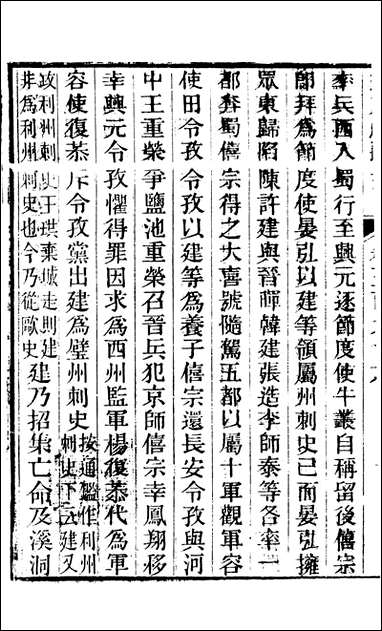 率兵西入蜀行至興元逐節度使牛叢自稱留後僖宗
卽拜爲節度使晏引以建等領屬州刺史已而晏引擁
眾東歸陷陳許建與晉暉韓建張造李師泰等各率一
都奔蜀僖宗得之大喜號隨駕五都以屬十軍觀軍容
使田令孜令孜以建等爲養子僖宗還長安令孜與河
中王重榮爭鹽池重榮召晉兵犯京師僖宗幸鳳翔移
幸興元令孜懼得罪因求爲西州監軍楊復恭代爲軍
容使復恭斥令孜黨出建爲璧州刺史按通鑑作利州
刺史下云建又
政利州刺史王珙棄城走則建
非爲利州刺史也今乃從歐史建乃招集亡命及溪洞